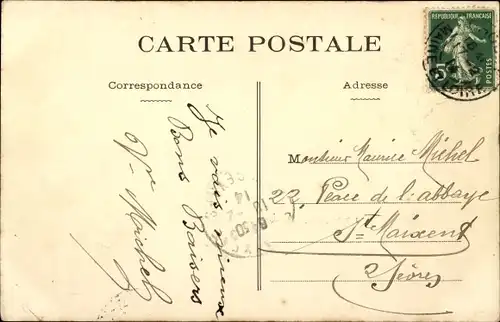 CARTE POSTALE
RÉPUBLIQUE FRANÇAISE
5c
POSTES
LOIRE
Correspondance
Adresse
Je vais mieux
Bons Baisers
Vve Michel
Monsieur Maurice Michel
22, Place de l'abbaye
St Maixent
2 Sèvres